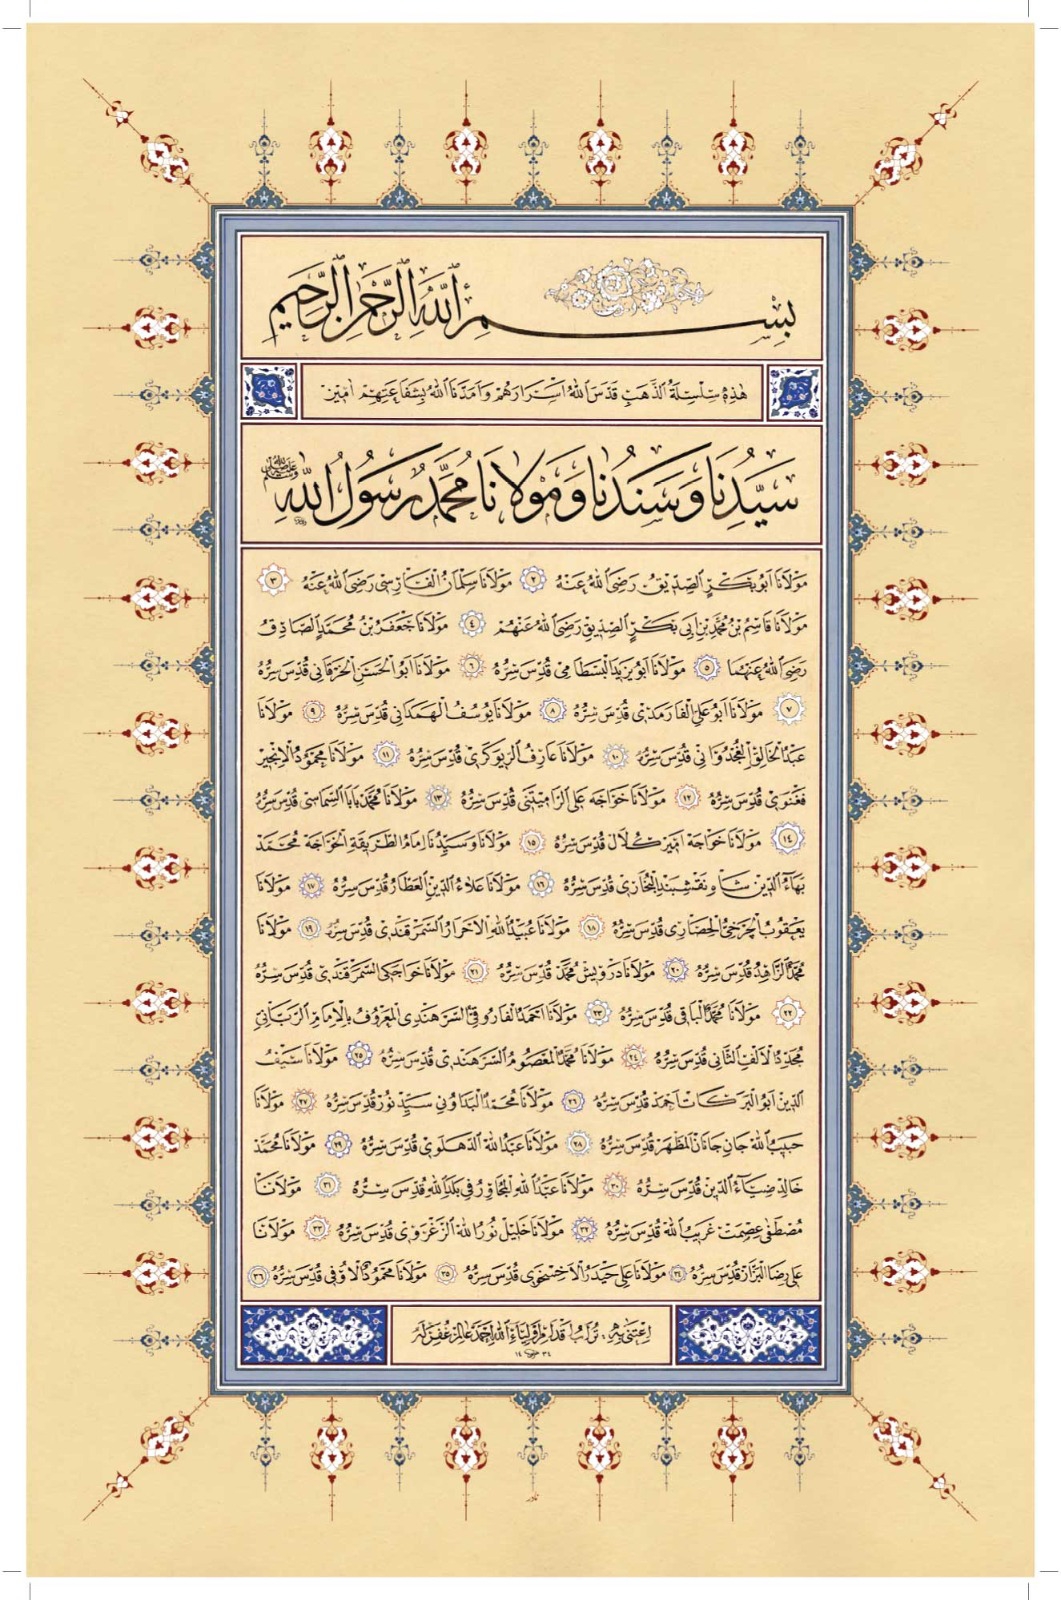 بِسْمِ اللهِ الرَّحْمٰنِ الرَّحِيمِ
هٰذِهِ سِلْسِلَةُ الذَّهَبِ قَدَّسَ اللهُ اَسْرَارَهُمْ وَاَمَدَّنَا اللهُ بِشَفَاعَتِهِمْ اٰمِينْ
سَيِّدِنَا وَسَنَدُنَا وَمَوْلَانَا مُحَمَّدٌ رَسُولُ اللهِ ﷺ
مَوْلَانَا اَبُو بَكْرٍ الصِّدِّيقُ رَضِيَ اللهُ عَنْهُ ٢ مَوْلَانَا سَلْمَانُ الْفَارِسِى رَضِيَ اللهُ عَنْهُ ٣
مَوْلَانَا قَاسِمُ بْنُ مُحَمَّدِ بْنِ اَبِى بَكْرٍ الصِّدِّيقِ رَضِيَ اللهُ عَنْهُمْ ٤ مَوْلَانَا جَعْفَرُ بْنُ مُحَمَّدٍ الصَّادِقُ
رَضِيَ اللهُ عَنْهُمَا ٥ مَوْلَانَا اَبُو يَزِيدَ الْبَسْطَامِى قُدِّسَ سِرُّهُ ٦ مَوْلَانَا اَبُو الْحَسَنِ الْخَرَقَانِى قُدِّسَ سِرُّهُ
٧ مَوْلَانَا اَبُو عَلِى الْفَارْمَدِى قُدِّسَ سِرُّهُ ٨ مَوْلَانَا يُوسُفُ الْهَمَدَانِى قُدِّسَ سِرُّهُ ٩ مَوْلَانَا
عَبْدُ الْخَالِقِ الْغُجْدُوَانِى قُدِّسَ سِرُّهُ ١٠ مَوْلَانَا عَارِفُ الرِّيوَكَرِى قُدِّسَ سِرُّهُ ١١ مَوْلَانَا مَحْمُودُ الْاِنْجِيرْ
فَغْنَوِى قُدِّسَ سِرُّهُ ١٢ مَوْلَانَا خَوَاجَه عَلِى الرَّامِيتَنِى قُدِّسَ سِرُّهُ ١٣ مَوْلَانَا مُحَمَّدْ بَابَا السَّمَاسِى قُدِّسَ سِرُّهُ
١٤ مَوْلَانَا خَوَاجَه اَمِيرْ كُلَالْ قُدِّسَ سِرُّهُ ١٥ مَوْلَانَا وَسَيِّدُنَا اِمَامُ الطَّرِيقَةِ الْخَوَاجَه مُحَمَّدْ
بَهَاءُ الدِّينْ شَاه نَقْشِبَنْدِ الْبُخَارِى قُدِّسَ سِرُّهُ ١٦ مَوْلَانَا عَلَاءُ الدِّينِ الْعَطَّارْ قُدِّسَ سِرُّهُ ١٧ مَوْلَانَا
يَعْقُوبُ الْچَرْخِى الْحِصَارِى قُدِّسَ سِرُّهُ ١٨ مَوْلَانَا عُبَيْدُ اللهِ الْاَحْرَارُ السَّمَرْقَنْدِى قُدِّسَ سِرُّهُ ١٩ مَوْلَانَا
مُحَمَّدُ الزَّاهِدُ قُدِّسَ سِرُّهُ ٢٠ مَوْلَانَا دَرْوِيشْ مُحَمَّدْ قُدِّسَ سِرُّهُ ٢١ مَوْلَانَا خَوَاجَكِى السَّمَرْقَنْدِى قُدِّسَ سِرُّهُ
٢٢ مَوْلَانَا مُحَمَّدُ الْبَاقِى قُدِّسَ سِرُّهُ ٢٣ مَوْلَانَا اَحْمَدُ الْفَارُوقِى السَّرْهَنْدِى الْمَعْرُوفُ بِالْاِمَامِ الرَّبَّانِى
مُجَدِّدُ الْاَلْفِ الثَّانِى قُدِّسَ سِرُّهُ ٢٤ مَوْلَانَا مُحَمَّدُ الْمَعْصُومُ السَّرْهَنْدِى قُدِّسَ سِرُّهُ ٢٥ مَوْلَانَا سَيْفُ
الدِّينْ اَبُو الْبَرَكَاتْ اَحْمَدْ قُدِّسَ سِرُّهُ ٢٦ مَوْلَانَا مُحَمَّدُ الْبَدَاوُنِى سَيِّدْ نُورْ قُدِّسَ سِرُّهُ ٢٧ مَوْلَانَا
حَبِيبُ اللهْ جَانِ جَانَانْ الْمَظْهَرْ قُدِّسَ سِرُّهُ ٢٨ مَوْلَانَا عَبْدُ اللهْ الدَّهْلَوِى قُدِّسَ سِرُّهُ ٢٩ مَوْلَانَا مُحَمَّدْ
خَالِدْ ضِيَاءُ الدِّينْ قُدِّسَ سِرُّهُ ٣٠ مَوْلَانَا عَبْدُ اللهِ الْمُجَاوِرُ فِى بَلَدِ اللهِ قُدِّسَ سِرُّهُ ٣١ مَوْلَانَا
مُصْطَفٰى عِصْمَتْ غَرِيبُ اللهْ قُدِّسَ سِرُّهُ ٣٢ مَوْلَانَا خَلِيلْ نُورُ اللهْ الزَّغْرَوِى قُدِّسَ سِرُّهُ ٣٣ مَوْلَانَا
عَلِى رِضَا الْبَزَّازْ قُدِّسَ سِرُّهُ ٣٤ مَوْلَانَا عَلِى حَيْدَرُ الْاَخِسْخَوِى قُدِّسَ سِرُّهُ ٣٥ مَوْلَانَا مَحْمُودُ الْاُوفِى قُدِّسَ سِرُّهُ ٣٦
اِعْتَنٰى بِهِ: تُرَابُ اَقْدَامِ اَوْلِيَاءِ اللهِ اَحْمَدْ عَالِمْ غُفِرَ لَهُ
١٤٣٤